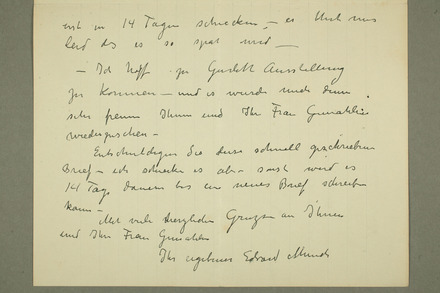 erst in 14 Tagen schicken, – es thut mir
leid das es so spät wird –
– Ich hoffe zu Gurlitt Ausstellung
zu kommen – und es wurde mich dann
sehr freuen Ihnen und Ihr Frau Gemahlin
wiederzusehen –
Entschuldigen Sie diese schnell geschriebene
Brief – ich schicke es aber sonst wird es
14 Tage dauern bis ein neues Brief schreiben
kann –
Mit viele herzlichen Grüssen an Ihnen
und Ihr Frau Gemahlin
Ihr ergebener Edvard Munch